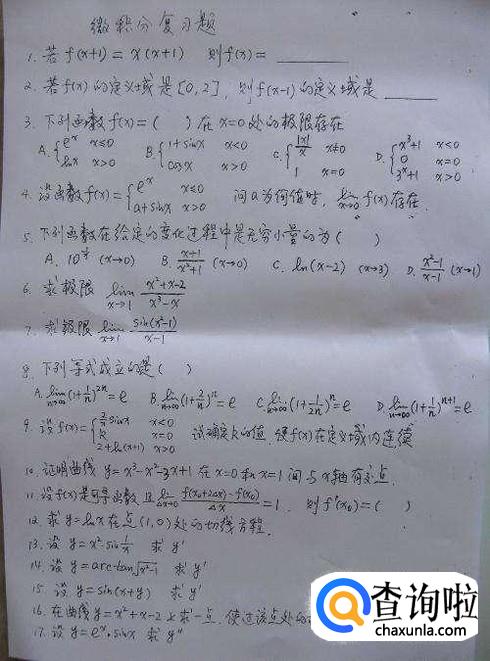 微积分复习题
1. 若f(x+1)=x(x+1) 则f(x)=
2. 若f(x)的定义域是[0,2],则f(x-1)的定义域是
3. 下列函数f(x)=( )在x=0处的极限存在
A.{e^x x≤0 lnx x>0 B.{1+sinx x<0 cosx x>0 C.{|x|/x x≠0 1 x=0 D.{x³+1 x<0 0 x=0 3^x+1 x>0
4. 设函数f(x)={e^x x≤0 a+sinx x>0 问a为何值时,lim x→0 f(x)存在.
5. 下列函数在给定的变化过程中是无穷小量的为( )
B. (x+1)/(x²+1) (x→0) C. ln(x-2) (x→3) D. (x²-1)/(x-1) (x→1)
6. 求极限 lim x→1 (x²+x-2)/(x³-x)
7. 求极限 lim x→1 sin(x²-1)/(x-1)
8. 下列等式成立的是( )
A. lim n→∞ (1+1/n)^2n=e B. lim n→∞ (1+2/n)^n=e C. lim n→∞ (1+1/2n)^n=e D. lim n→∞ (1+1/n)^n+1=e
9. 设f(x)={ sinx x<0 k x=0 2+ln(x+1) x>0 试确定k的值 使f(x)在定义域内连续
10. 证明曲线 y=x³-x²-3x+1在x=0和x=1间与x轴有交点.
11. 设f(x)是可导函数且 lim Δx→0 (f(x₀+2Δx)-f(x₀))/Δx=1, 则f'(x₀)=( )
12. 求y=lnx在点(1,0)处的切线方程.
13. 设y=x²·sin1/x 求y'
14. 设y=arctan√(x²-1) 求y'
15. 设y=sin(x+y) 求y'
16. 在曲线y=x²+x-2上求一点,使过该点处的
17. 设y=e^x·sinx 求y"
查询啦
chaxunla.com